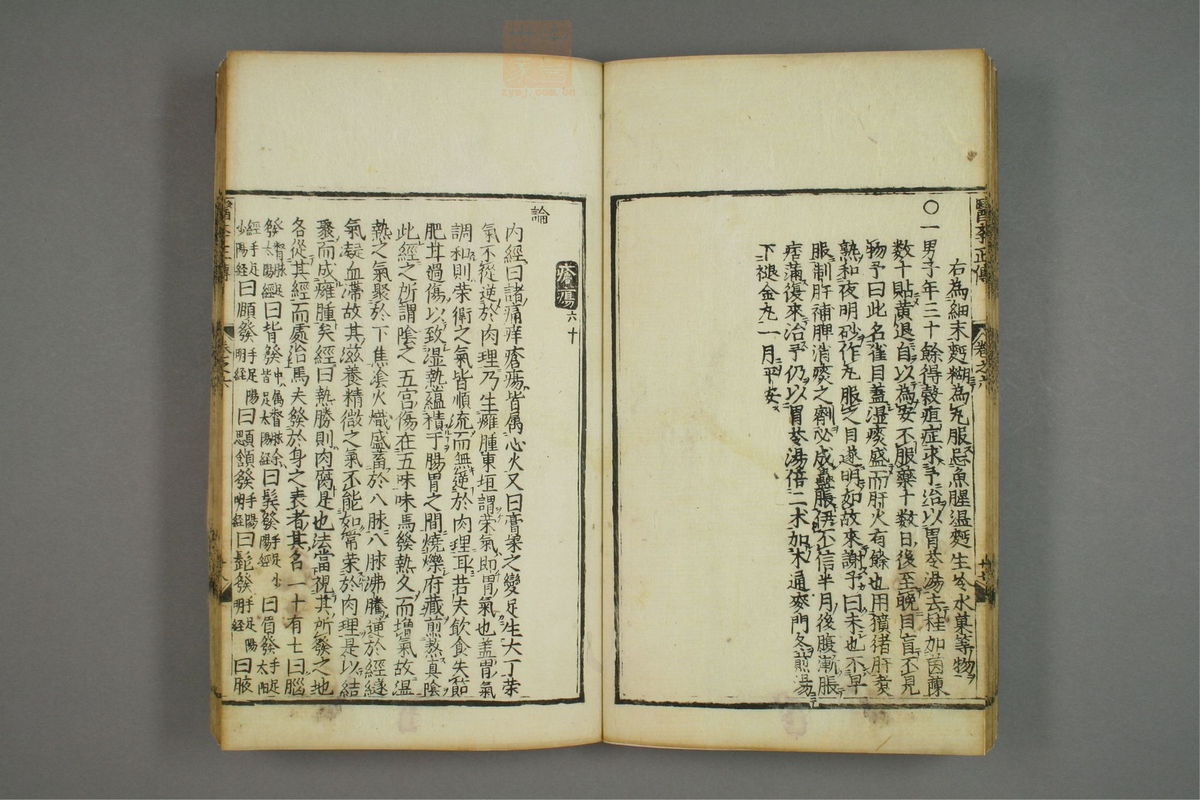 右為細末麪糊為丸服忌魚腥温麪生冷水菓等物
○一男子年三十餘得穀疸症求予治以胃苓湯去桂加茵蔯
數十貼黄退自以為安不服藥十數日後至晚目盲不見
物予曰此名雀目蓋湿痰盛而肝火有餘也用獖猪肝煑
熟和夜明砂作丸服之目遂明如故來謝予曰未也不早
服制肝補脾消痰之劑必成蠱脹伊不信半月後腹漸脹
痞滿復來治予仍以胃苓湯倍二术加木通麥門冬煎湯
下褪金丸一月平安
醫學正傳
卷之六
瘡瘍
六十
論
内經曰諸痛痒瘡瘍皆属心火又曰膏粱之變足生大丁榮
氣不從逆於肉理乃生癰腫東垣謂榮氣即胃氣也蓋胃氣
調和則榮衛之氣皆順流而無逆於肉理耳若夫飲食失節
肥甘過傷以致湿熱蘊積于腸胃之間燒爍府藏煎熬真陰
此經之所謂陰之五宮傷在五味味焉發熱久而增氣故温
熱之氣聚於下焦陰火熾盛蓄於八脉八脉沸騰逆於經縫
氣凝血滯故其滋養精微之氣不能如常榮於肉理是以結
聚而成癰腫矣經曰熱勝則肉腐是也法當視其所發之地
各從其經而處治焉夫發於身之表者其名一十有七曰腦
發督脉足太陽經曰背發中属督脉餘皆足太陽經曰鬂發手足少陽經曰眉發手足太陽
經手足少陽經曰頤發手足陽明經曰顋頷發手足陽明經曰髭發手足陽明經曰腋